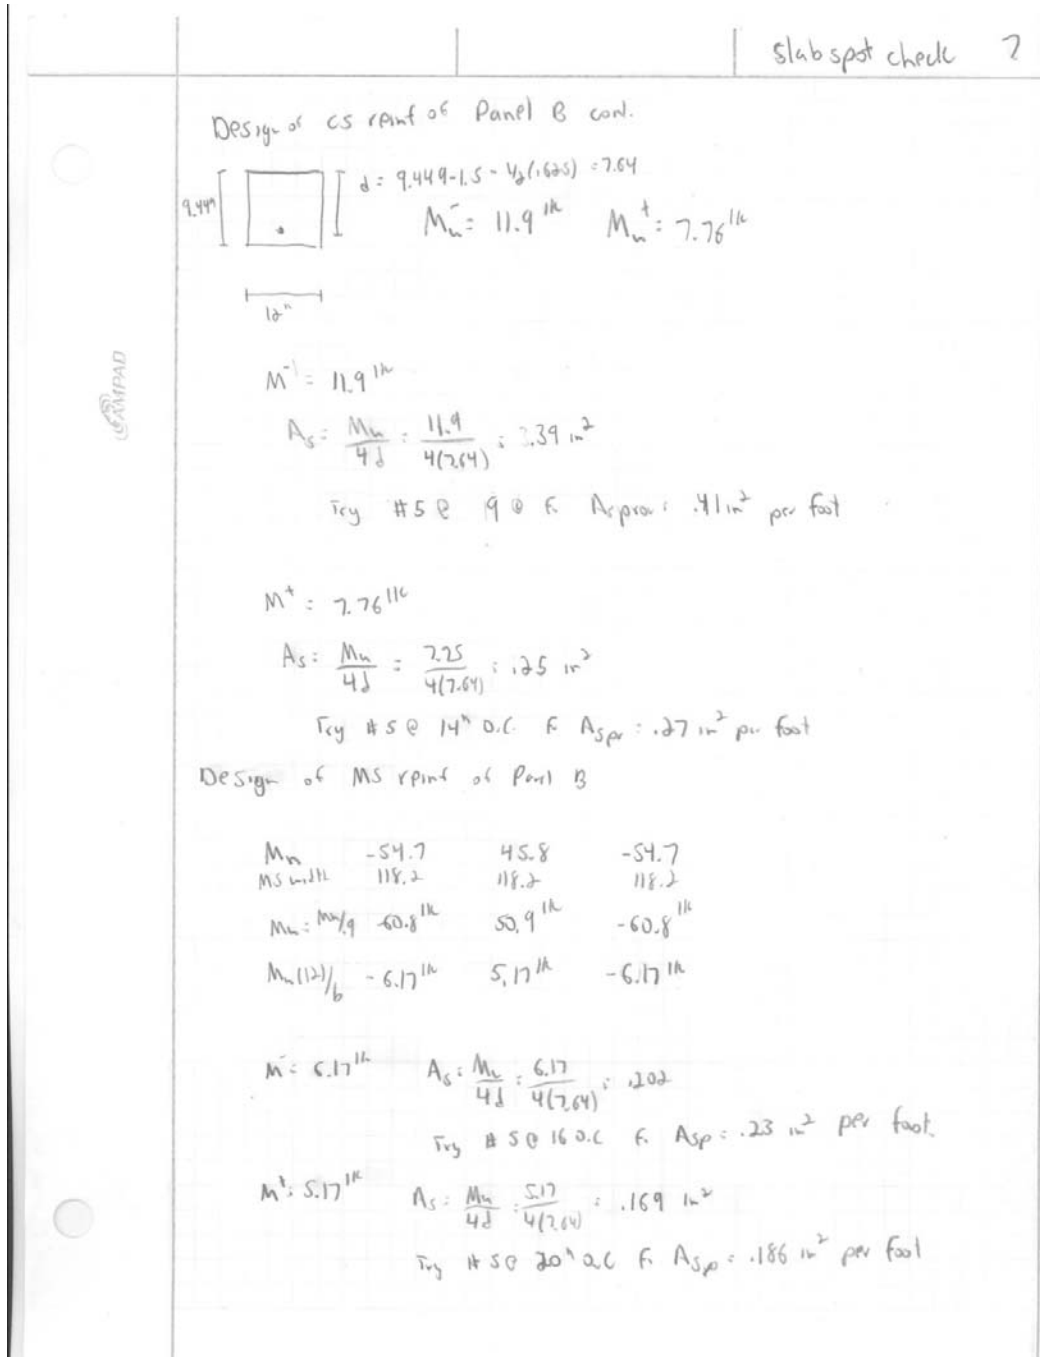 slab spot check 7
Design of CS reinf of Panel B cont.
9.449"
d = 9.449-1.5 - 1/2(.625) = 7.64
Mn⁻ = 11.9 'k Mn⁺ = 7.76 'k
12"
AMPAD
M⁻ = 11.9 'k
As = Mn/4d = 11.9/4(7.64) = .39 in²
Try #5 @ 9 @ As prov = .41 in² per foot
M⁺ = 7.76 'k
As = Mn/4d = 7.25/4(7.64) = .25 in²
Try #5 @ 14" O.C. As pr = .27 in² per foot
Design of MS reinf of Panel B
Mn -54.7 45.8 -54.7
MS width 118.2 118.2 118.2
Mn = Mn/.9 -60.8 'k 50.9 'k -60.8 'k
Mn(12)/b -6.17 'k 5.17 'k -6.17 'k
M⁻ = 6.17 'k As = Mn/4d = 6.17/4(7.64) = .202
Try #5 @ 16 O.C Asp = .23 in² per foot.
M⁺ = 5.17 'k As = Mn/4d = 5.17/4(7.64) = .169 in²
Try #5 @ 20" O.C Asp = .186 in² per foot